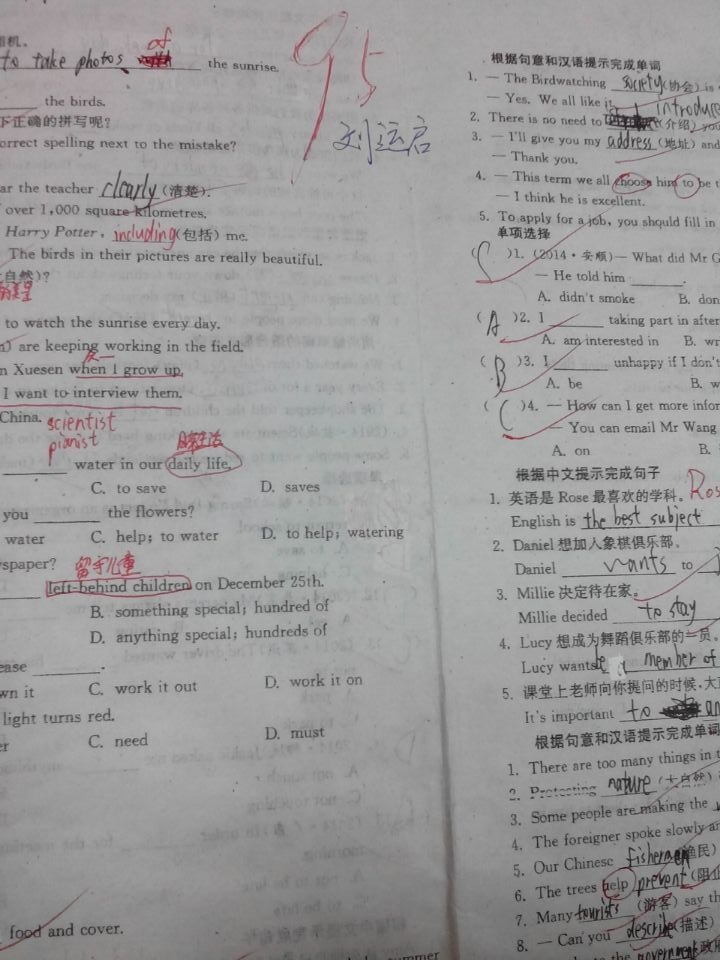 相机。
to take photos of the sunrise.
the birds.
下正确的拼写呢?
correct spelling next to the mistake?
ar the teacher clearly (清楚).
over 1,000 square kilometres.
Harry Potter, including (包括) me.
The birds in their pictures are really beautiful.
自然)?
to watch the sunrise every day.
) are keeping working in the field.
n Xuesen when I grow up.
I want to interview them.
China. scientist
pianist
日常生活
water in our daily life.
C. to save D. saves
you ______ the flowers?
water C. help; to water D. to help; watering
wspaper? 留守儿童
left-behind children on December 25th.
B. something special; hundred of
D. anything special; hundreds of
ease ______.
wn it C. work it out D. work it on
light turns red.
er C. need D. must
food and cover.
95
刘运启
根据句意和汉语提示完成单词
1. — The Birdwatching society (协会) is
— Yes. We all like it.
2. There is no need to introduce (介绍) you
3. — I'll give you my address (地址) and
— Thank you.
4. — This term we all choose him to be t
— I think he is excellent.
5. To apply for a job, you should fill in
单项选择
( )1. (2014·安顺)— What did Mr G
— He told him ______.
A. didn't smoke B. don
( A )2. I ______ taking part in after
A. am interested in B. wr
( B )3. I ______ unhappy if I don't
A. be B. w
( C )4. — How can I get more infor
— You can email Mr Wang
A. on B.
根据中文提示完成句子
1. 英语是 Rose 最喜欢的学科。 Ros
English is the best subject
2. Daniel 想加入象棋俱乐部。
Daniel wants to
3. Millie 决定待在家。
Millie decided to stay
4. Lucy 想成为舞蹈俱乐部的一员。
Lucy wants be member of
5. 课堂上老师向你提问的时候,大
It's important to an
根据句意和汉语提示完成单词
1. There are too many things in t
2. Protecting nature (大自然)
3. Some people are making the
4. The foreigner spoke slowly an
5. Our Chinese fishermen (渔民)
6. The trees help prevent (阻止
7. Many tourists (游客) say th
8. — Can you describe (描述)
government